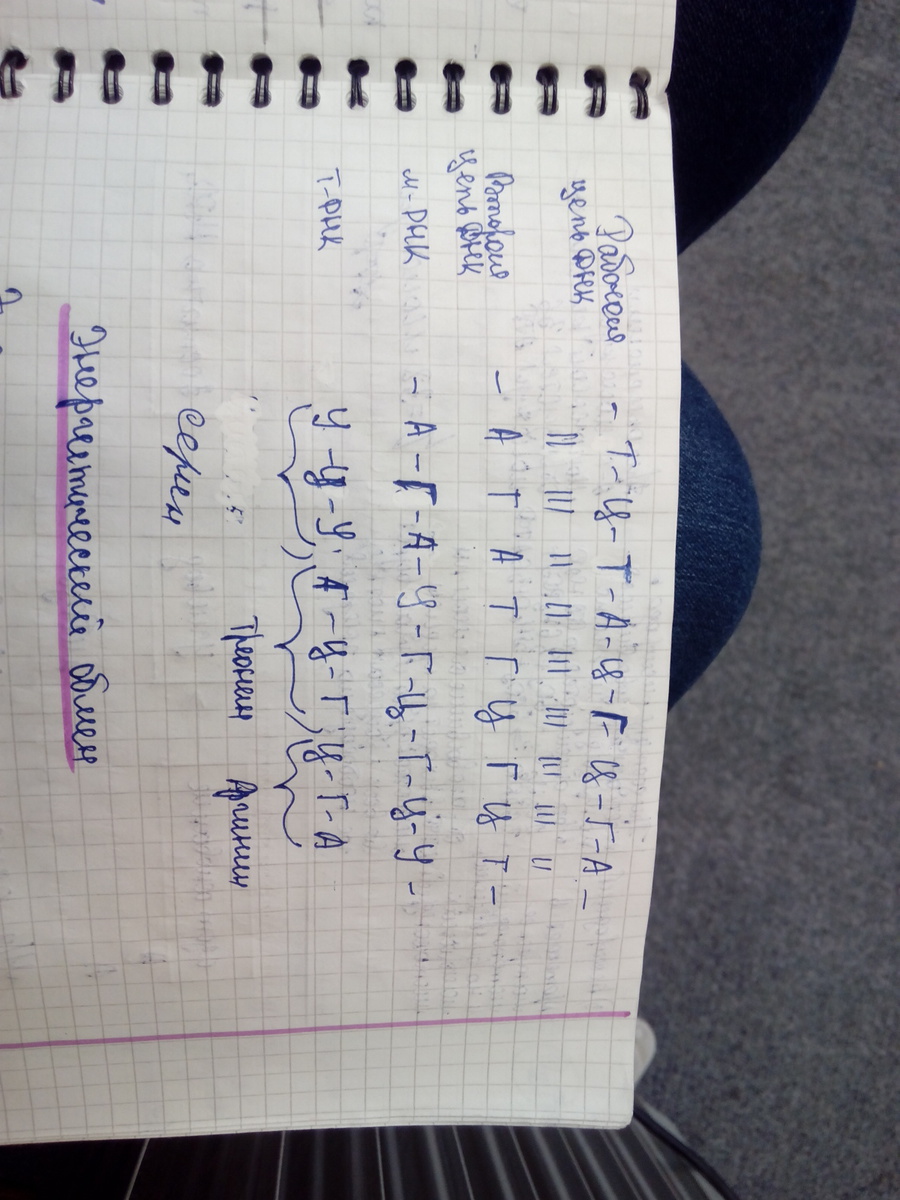 Рабочая - Т-Ц-Т-А-Ц-Г-Ц-Г-А-
цепь ДНК || ||| || || ||| ||| ||| ||| ||
Вторая - А Г А Т Г Ц Г Ц Т -
цепь ДНК
м-РНК - А-Г-А-У-Г-Ц-Г-Ц-У-
т-РНК У-Ц-У, А-Ц-Г, Ц-Г-А
Треонин Аргинин
Серин
Энергитический обмен